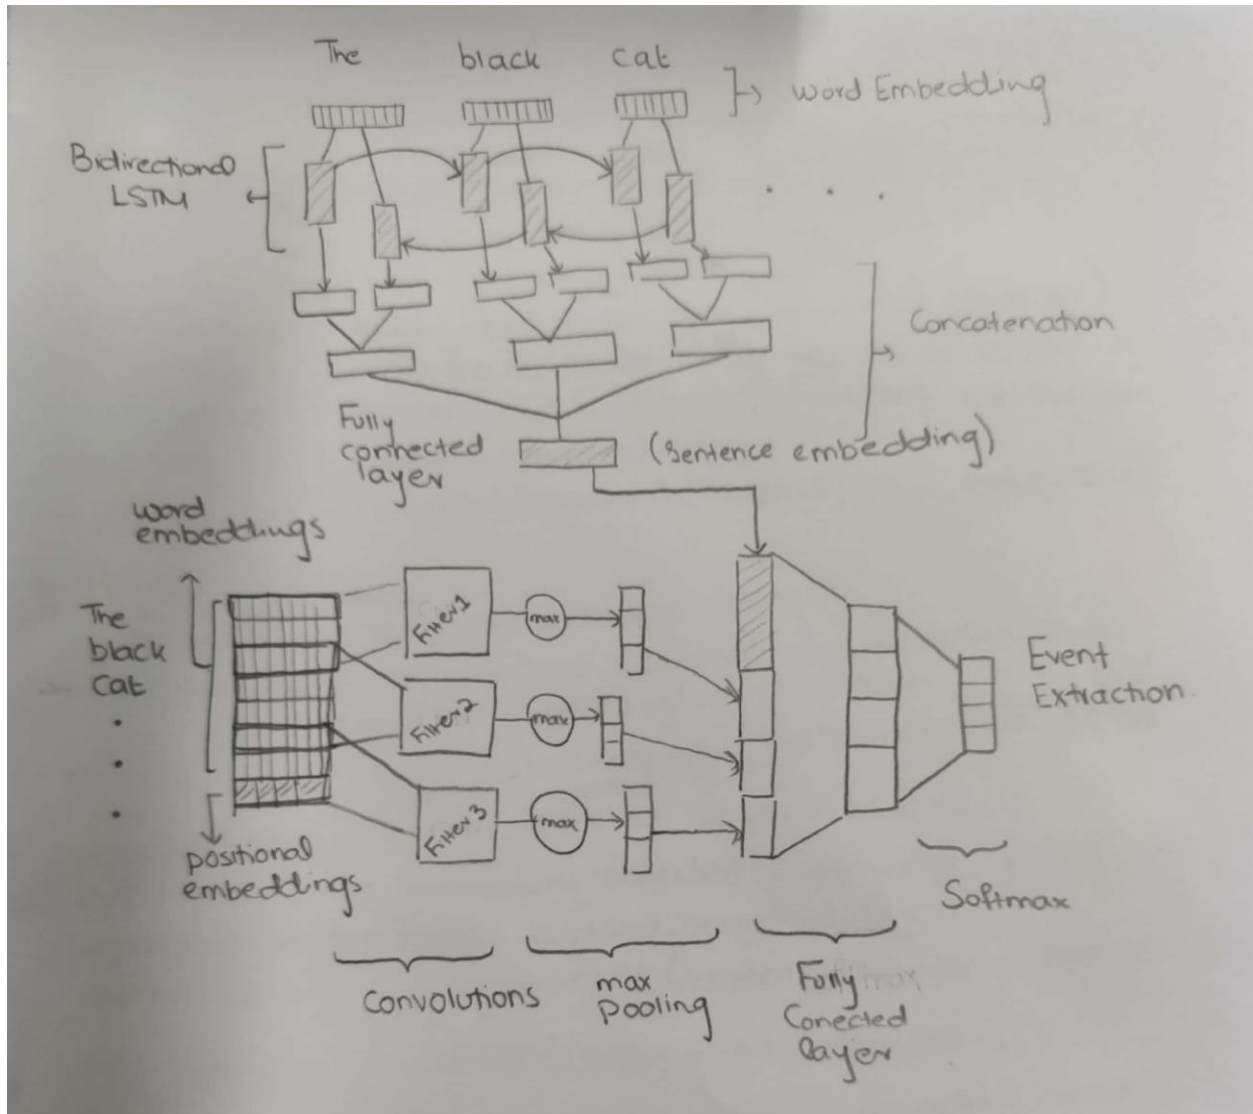 The black cat
word Embedding
Bidirectional
LSTM
. . .
Concatenation
Fully
connected
layer
(Sentence embedding)
word
embeddings
The
black
cat
.
.
.
positional
embeddings
Filter1
Filter2
Filter3
max
max
max
Event
Extraction.
Softmax
Convolutions
max
pooling
Fully
Conected
layer